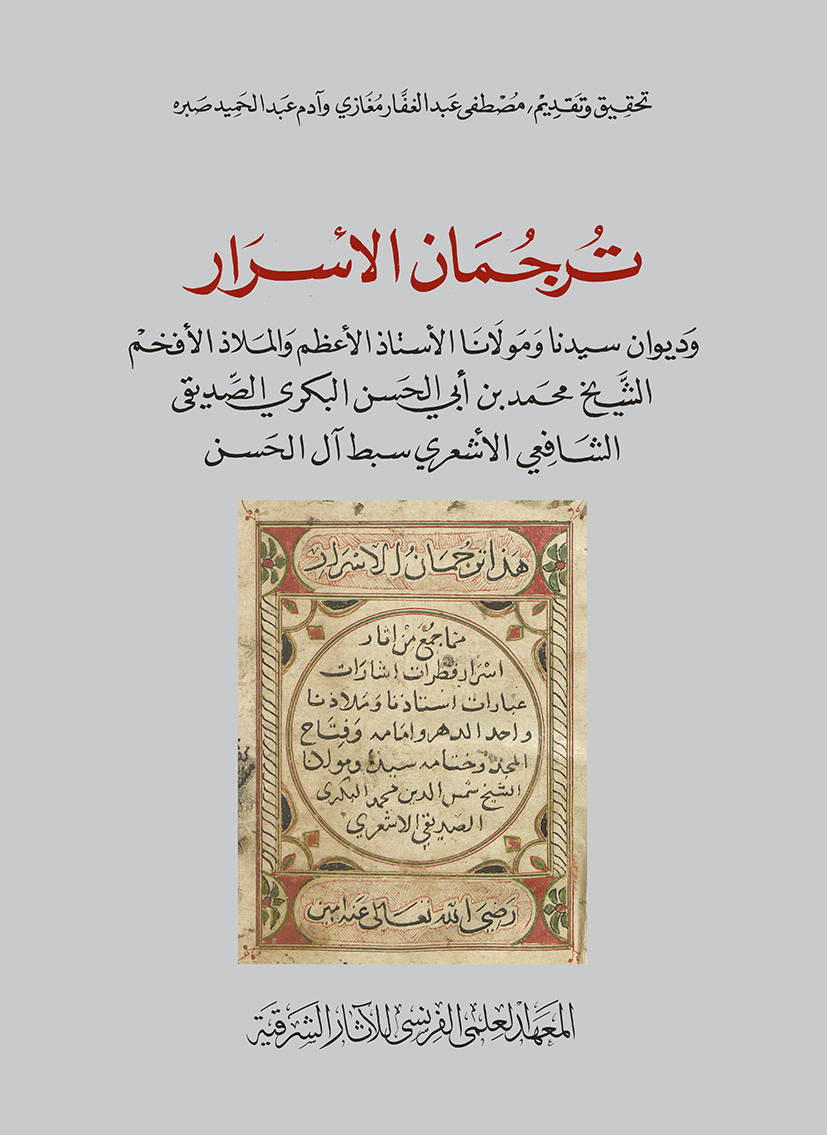 تحقيق وتقديم/ مُصْطفى عَبد الغفَّار مُغَازي وآدم عَبد الحَمِيد صَبره
تُرجُمَان الأسرَار
وَديوان سيدنا وَمَولَانَا الأستاذ الأعظم وَالمَلاذ الأفخَمْ
الشَّيخ محَمَد بن أبي الحَسن البكري الصِّديقى
الشَافِعي الأشعري سبط آل الحَسن
هَذا ترجُمَانُ الاسْرَارِ
مَا جمُعَ مِنْ اثار
اسْرار قطرات اشارات
عبارات استاذنا وَمَلاذنا
واحد الدهر وامامه وَفِتَاح
المجد وختامه سيدنا ومولانا
الشيخ شمس الدين محمد البكرى
الصديقي الاشعري
رَضِيَ اللهُ تعَالى عَنه امين
المَعهَد العِلمى الفِرنسى للآثار الشَرقيَة